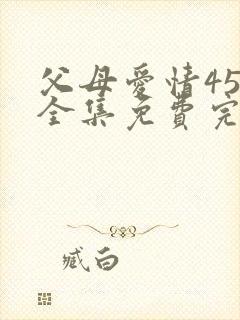 父母愛情45
全集免費完
臧白